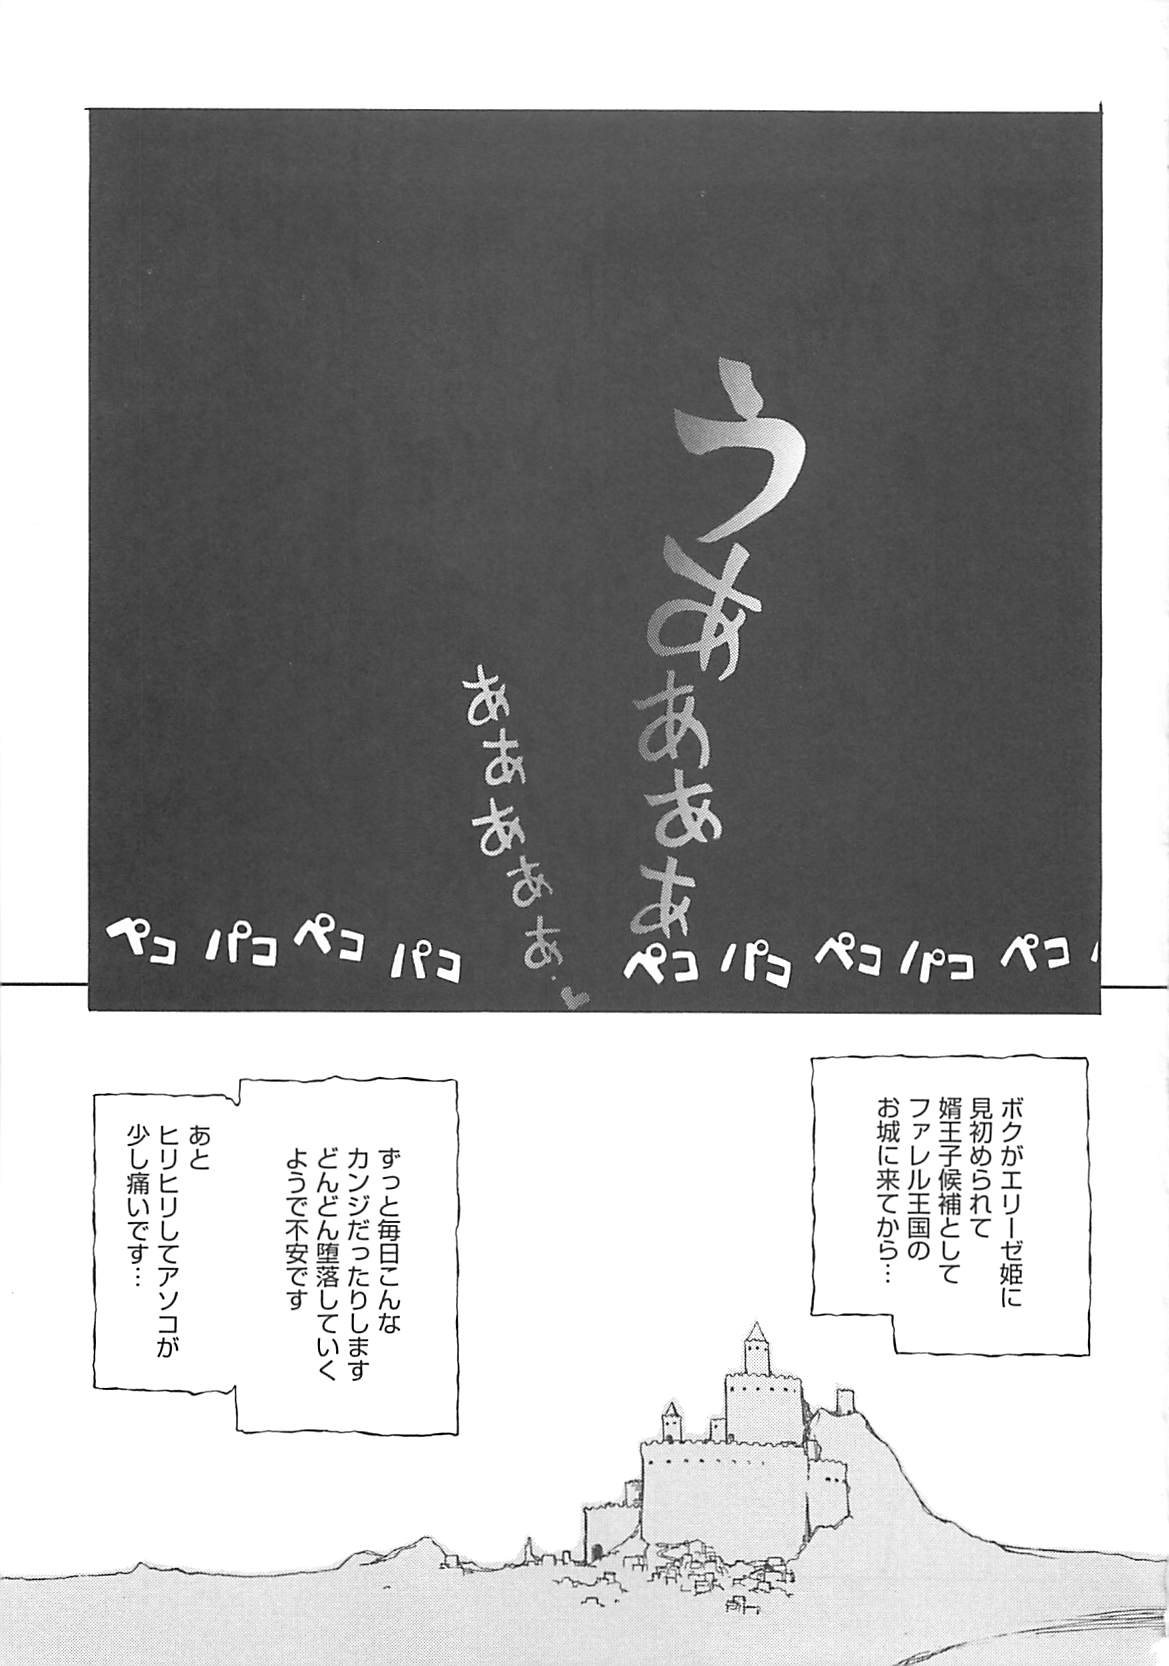 うぁ
あああ
ああああぁ.♥
ペコ パコ ペコ パコ ペコ パコ ペコ パコ ペコ
ボクがエリーゼ姫に
見初められて
婿王子候補として
ファレル王国の
お城に来てから…
ずっと毎日こんな
カンジだったりします
どんどん堕落していく
ようで不安です
あと
ヒリヒリしてアソコが
少し痛いです…